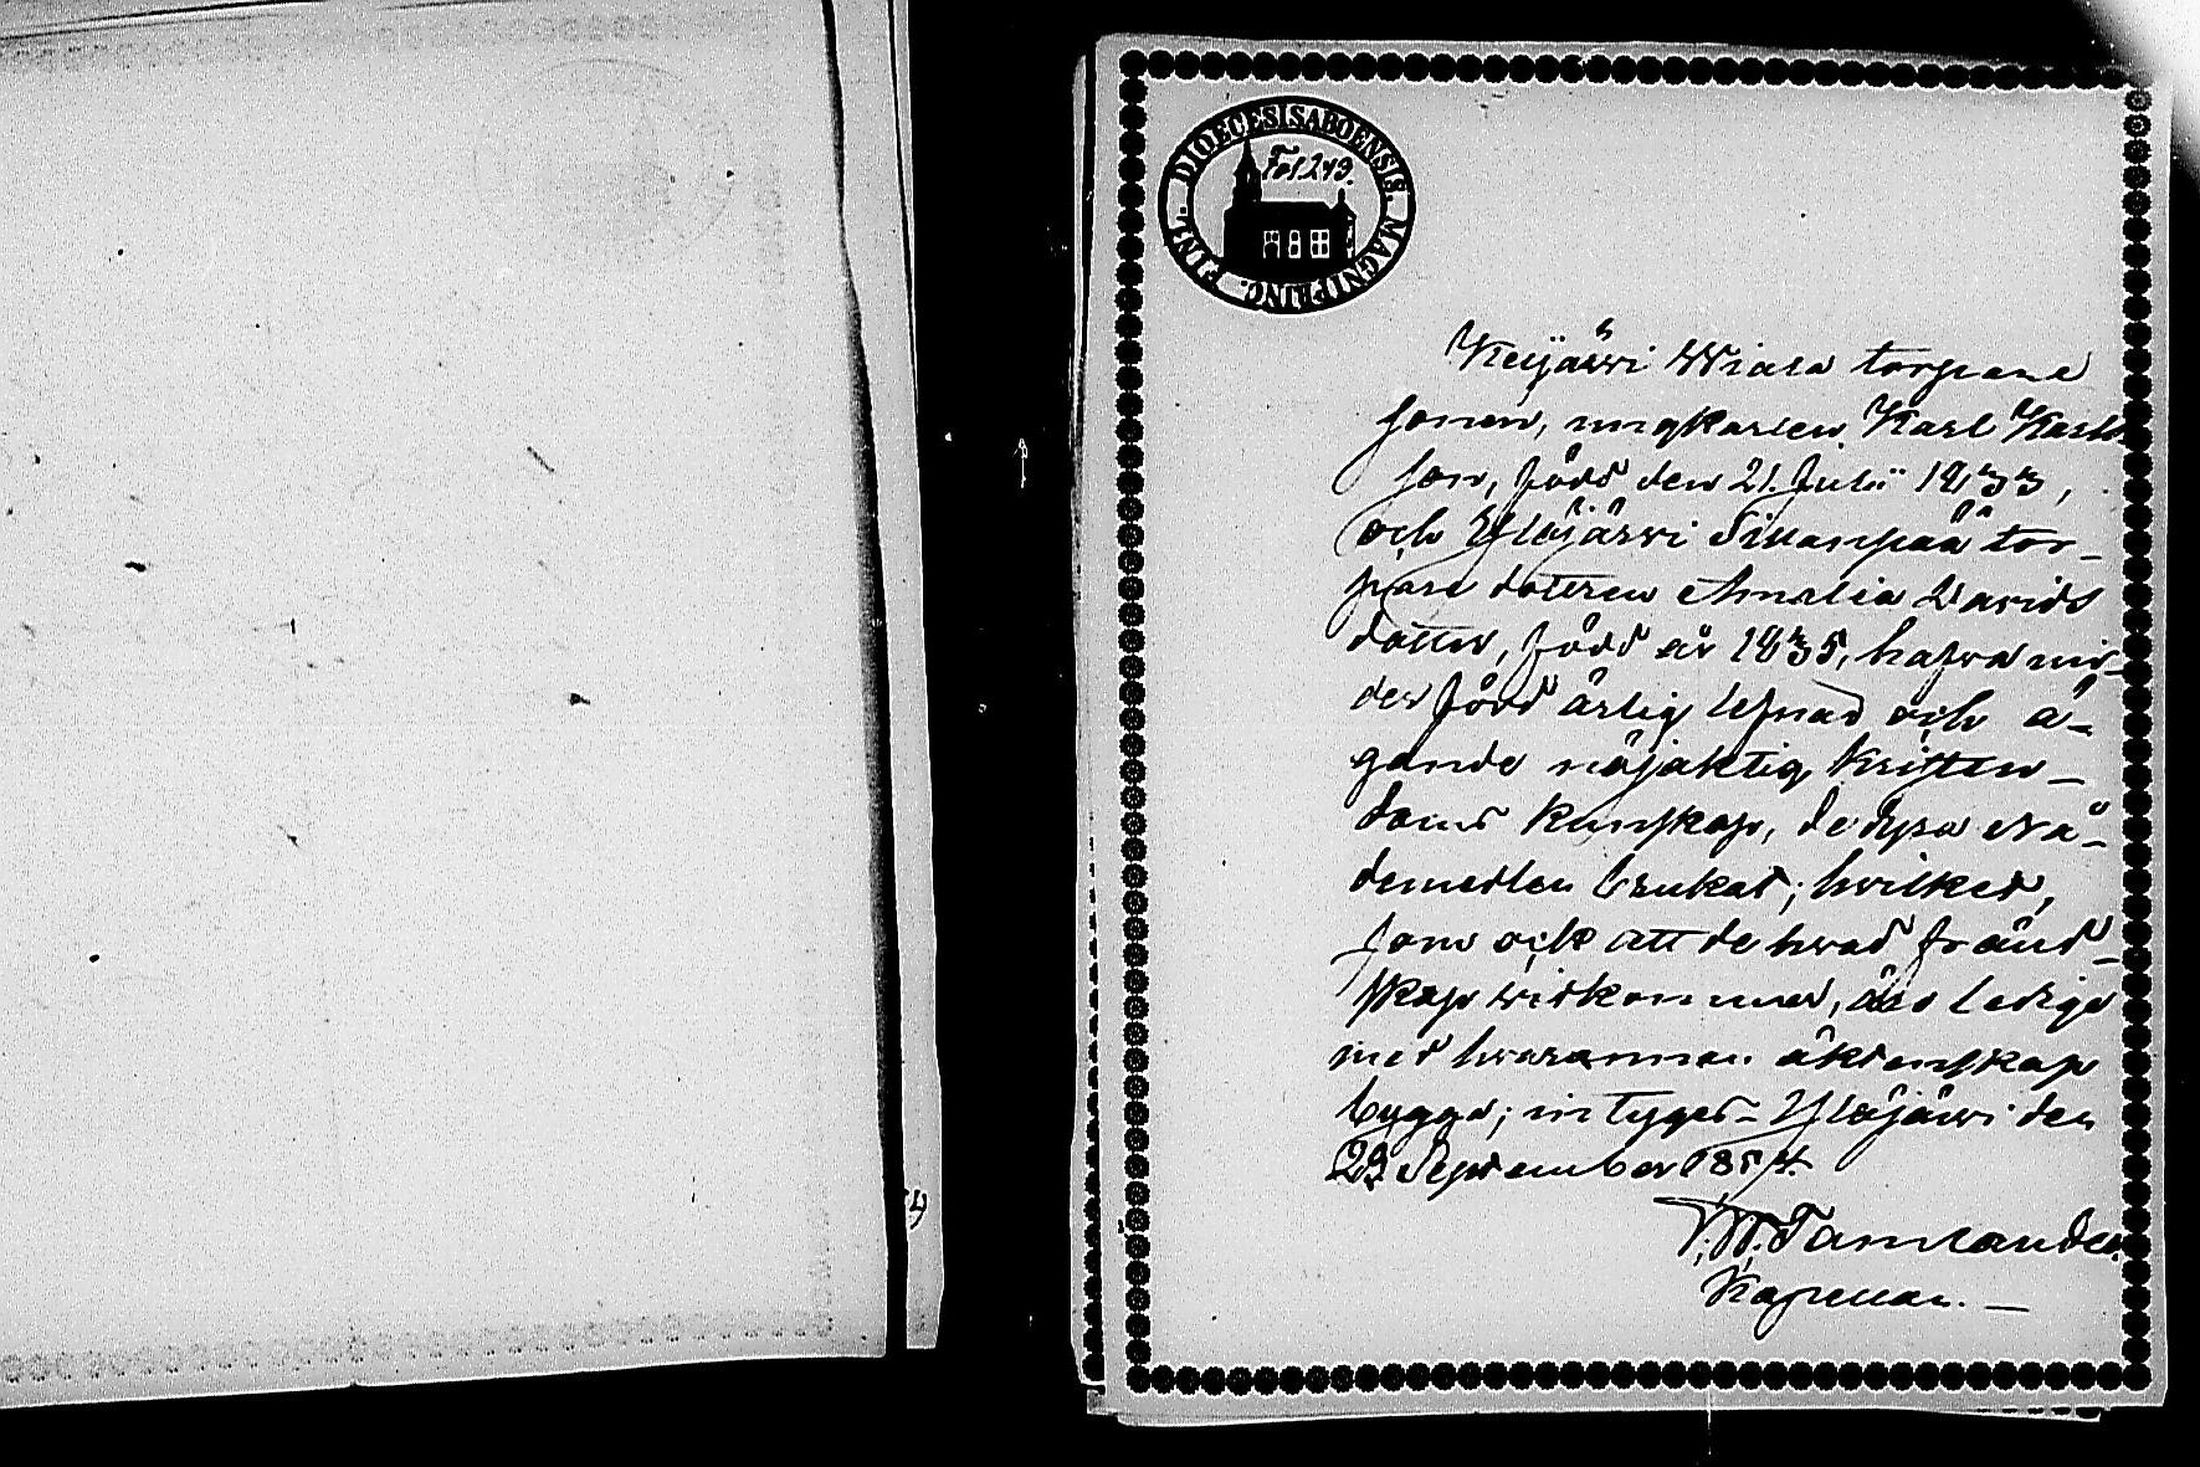 DIOECESIS ABOENSIS. MAGNI PRINC. FINL.
Fol 249.
Wiala torpare
sonen, ungkarlen Karl Karls
son, född den 21. Julii 1833,
och Ylöjärwi Sillanpää tor-
pare dottren Amalia Davids
dotter, född år 1835, hafwa un-
der förd ärlig lefnad och ä-
gande nöjaktig kristen-
doms kunskap, de dyra Nå-
demedlen brukat; hwilket,
som ock att de hwad fränd-
skap widkommer, äro lediga
med hwarannan äktenskap
bygga; intygas- Ylöjärwi den
September 1854
Tamlander.
Kapellan. —